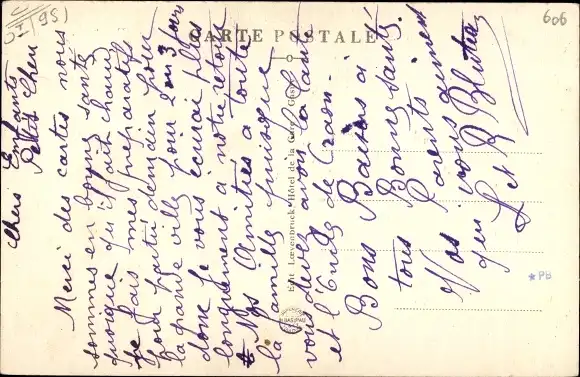 CARTE POSTALE
606
(95)
Chers Enfants
Petit Chou
Merci des cartes nous
sommes en bonne santé
quoique qu'il fait chaud
je fais mes préparatifs
pour partir demain pour
la grande ville pour 2 ou 3 jours
donc je vous écrirai plus
longuement à notre retour
Nos Amitiés à toute
la famille puisque
vous devez avoir la tante
et l'oncle de Craon.
Bons Baisers à
tous Bonne santé.
Nos Parents
qui vous aiment
L et R
Edit Lœvenbruck Hôtel de la Gare
*PB